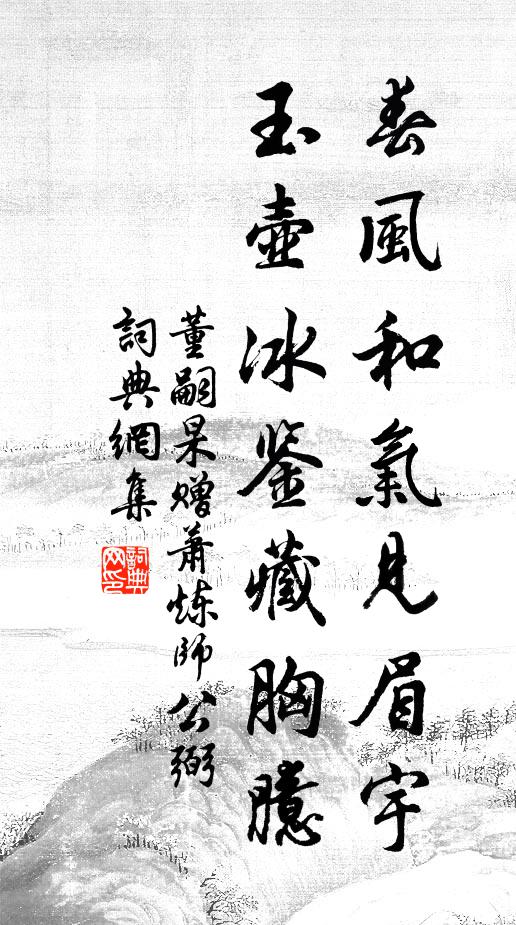 春風和氣見眉宇
玉壺冰鉴藏胸臆
董嗣杲贈蕭炼師公弼
詞典網集
詞典网印